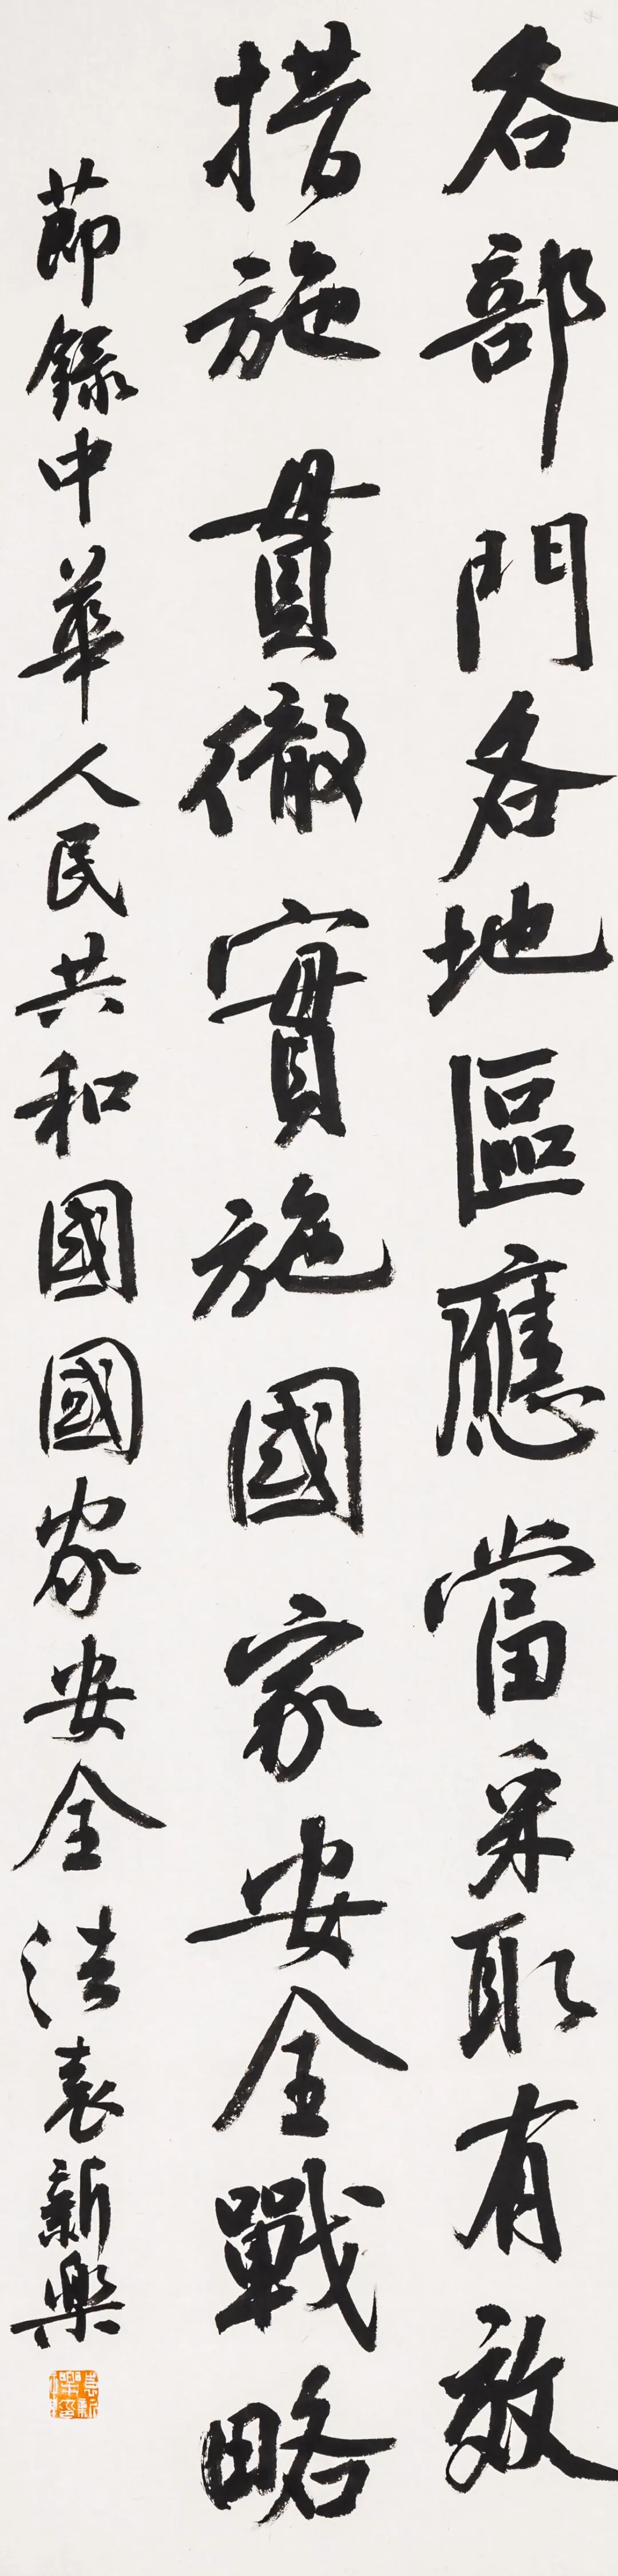 各部門各地區應當采取有效
措施貫徹實施國家安全戰略
節錄中華人民共和國國家安全法袁新樂